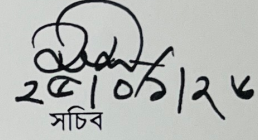 ২৫|০১|২৬
সচিব